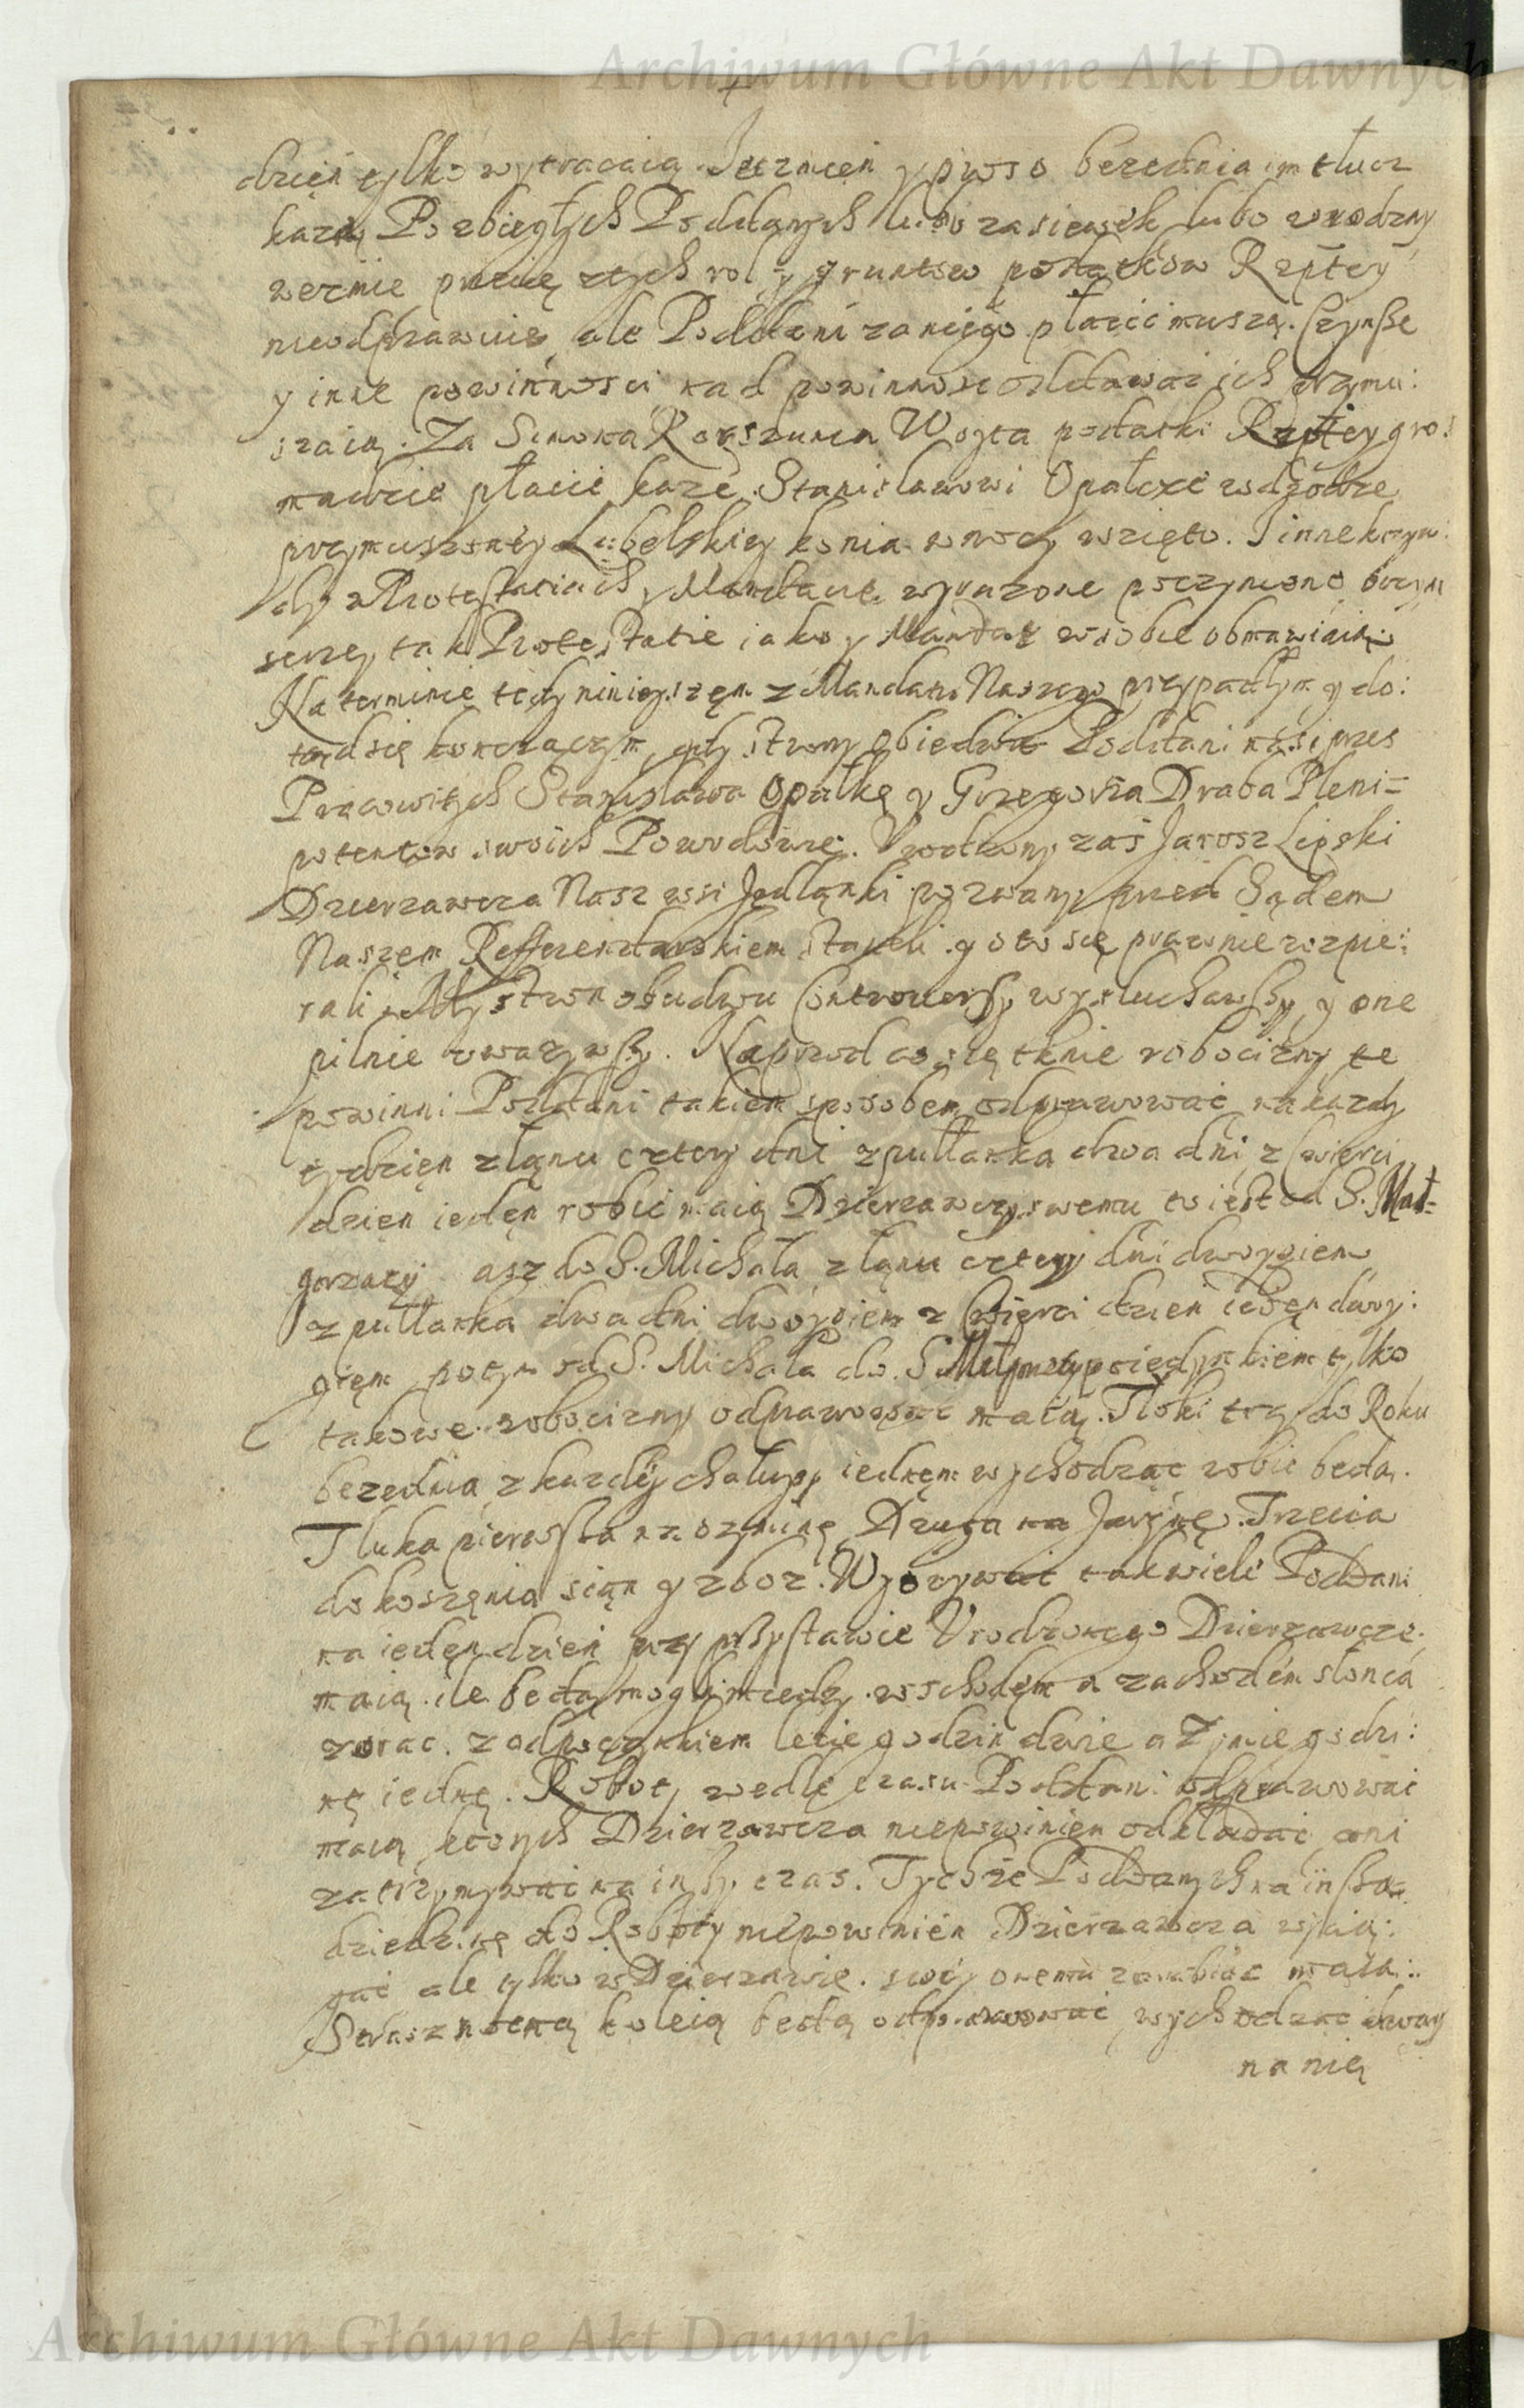 Archiwum Główne Akt Dawnych
dzień tylko wytracaią. Jęczmień y piwso bezednia im tłucz
każą. Po zbiegłych Poddanych lubo zasiewek lubo urodzay
weźmie przecię ztych rol y gruntow podatkow Rzptey
nieodprawuie, ale Poddani za niego płacić muszą. Czynße
y inne powinnosci nad powinnosc oddawać ich przymu:
szaią. Za Simona Woyta podatki Rzptey gro:
madzie płacić każe. Stanisławowi Opałcze wdrodze
przymuszoney Lubelskiey konia wnocy wzięto. I inne krzyw:
dy w Protestaciach y Mandacie wyrazone poczyniono
szerzey tak Protestatie iako y Mandat wsobie obmawiaią
Na terminie tedy ninieyszęm z Mandatu Naszego przypadłym y do:
tąd się konczączym, gdy strony obiedwie Poddani nasi przes
Pracowitych Stanisława Opałkę y Grzegorza Draba Pleni-
potentow swoich Powodowie. Vrodzony zaś Jarosz Lipski
Dzierzawca Nasz wsi Jedlanki pozwany przed Sądem
Naszem Refferendarskiem stanęli y oto się prawnie rozpie:
rali. My stron obudwu Controuersy wysłuchawßy y one
pilnie vwazywßy. Naprzod co się tknie robocizny te
powinni Poddani takiem sposobem odprawować na kazdy
tydzięn złanu cztery dni zpułłanka dwa dni, z Cwierci
dzien iedęn robić maią Dzierzawcy swemu to iest od S. Mał-
gorzaty asz do S. Michała złanu cztery dni dwoygiem
zpułłanka dwa dni dwoygiem z Cwierci dzien iedęn dwoy:
giem, potym od S. Michała do S. poiedynkiem tylko
takowe robocizny odprawować maią. Tłoki trzy do Roku
bezednia zkazdey chałupy iednęm wychodząc robić bedą.
Tłuka pierwßa na ozminę, Druga na Jarzynę. Trzecia
do koszęnia sian y zboz. Wyorywać takwiele Poddani
na iedęn dzień przy przystawie Vrodzonego Dzierzawcze
maią ile bedą mogli miedzy wschodęm a zachodem słonca
zorac. z odpoczynkiem lecie godzin dwie a Zymie godzi:
nę iednę. Roboty wedle czasu Poddani odprawować
maią, ktorych Dzierzawcza niepowinien odkładać, ani
zatrzymywać na inßy czas. Tychże Poddanych na inßą
dziedzinę do Roboty niepowinien Dzierzawcza wycią:
gać ale tylko w Dzierzawie swey onemu zarabiac maią:
Straz nocną koleią bedą odprawować, wychodząc dway
na nię
Archiwum Główne Akt Dawnych